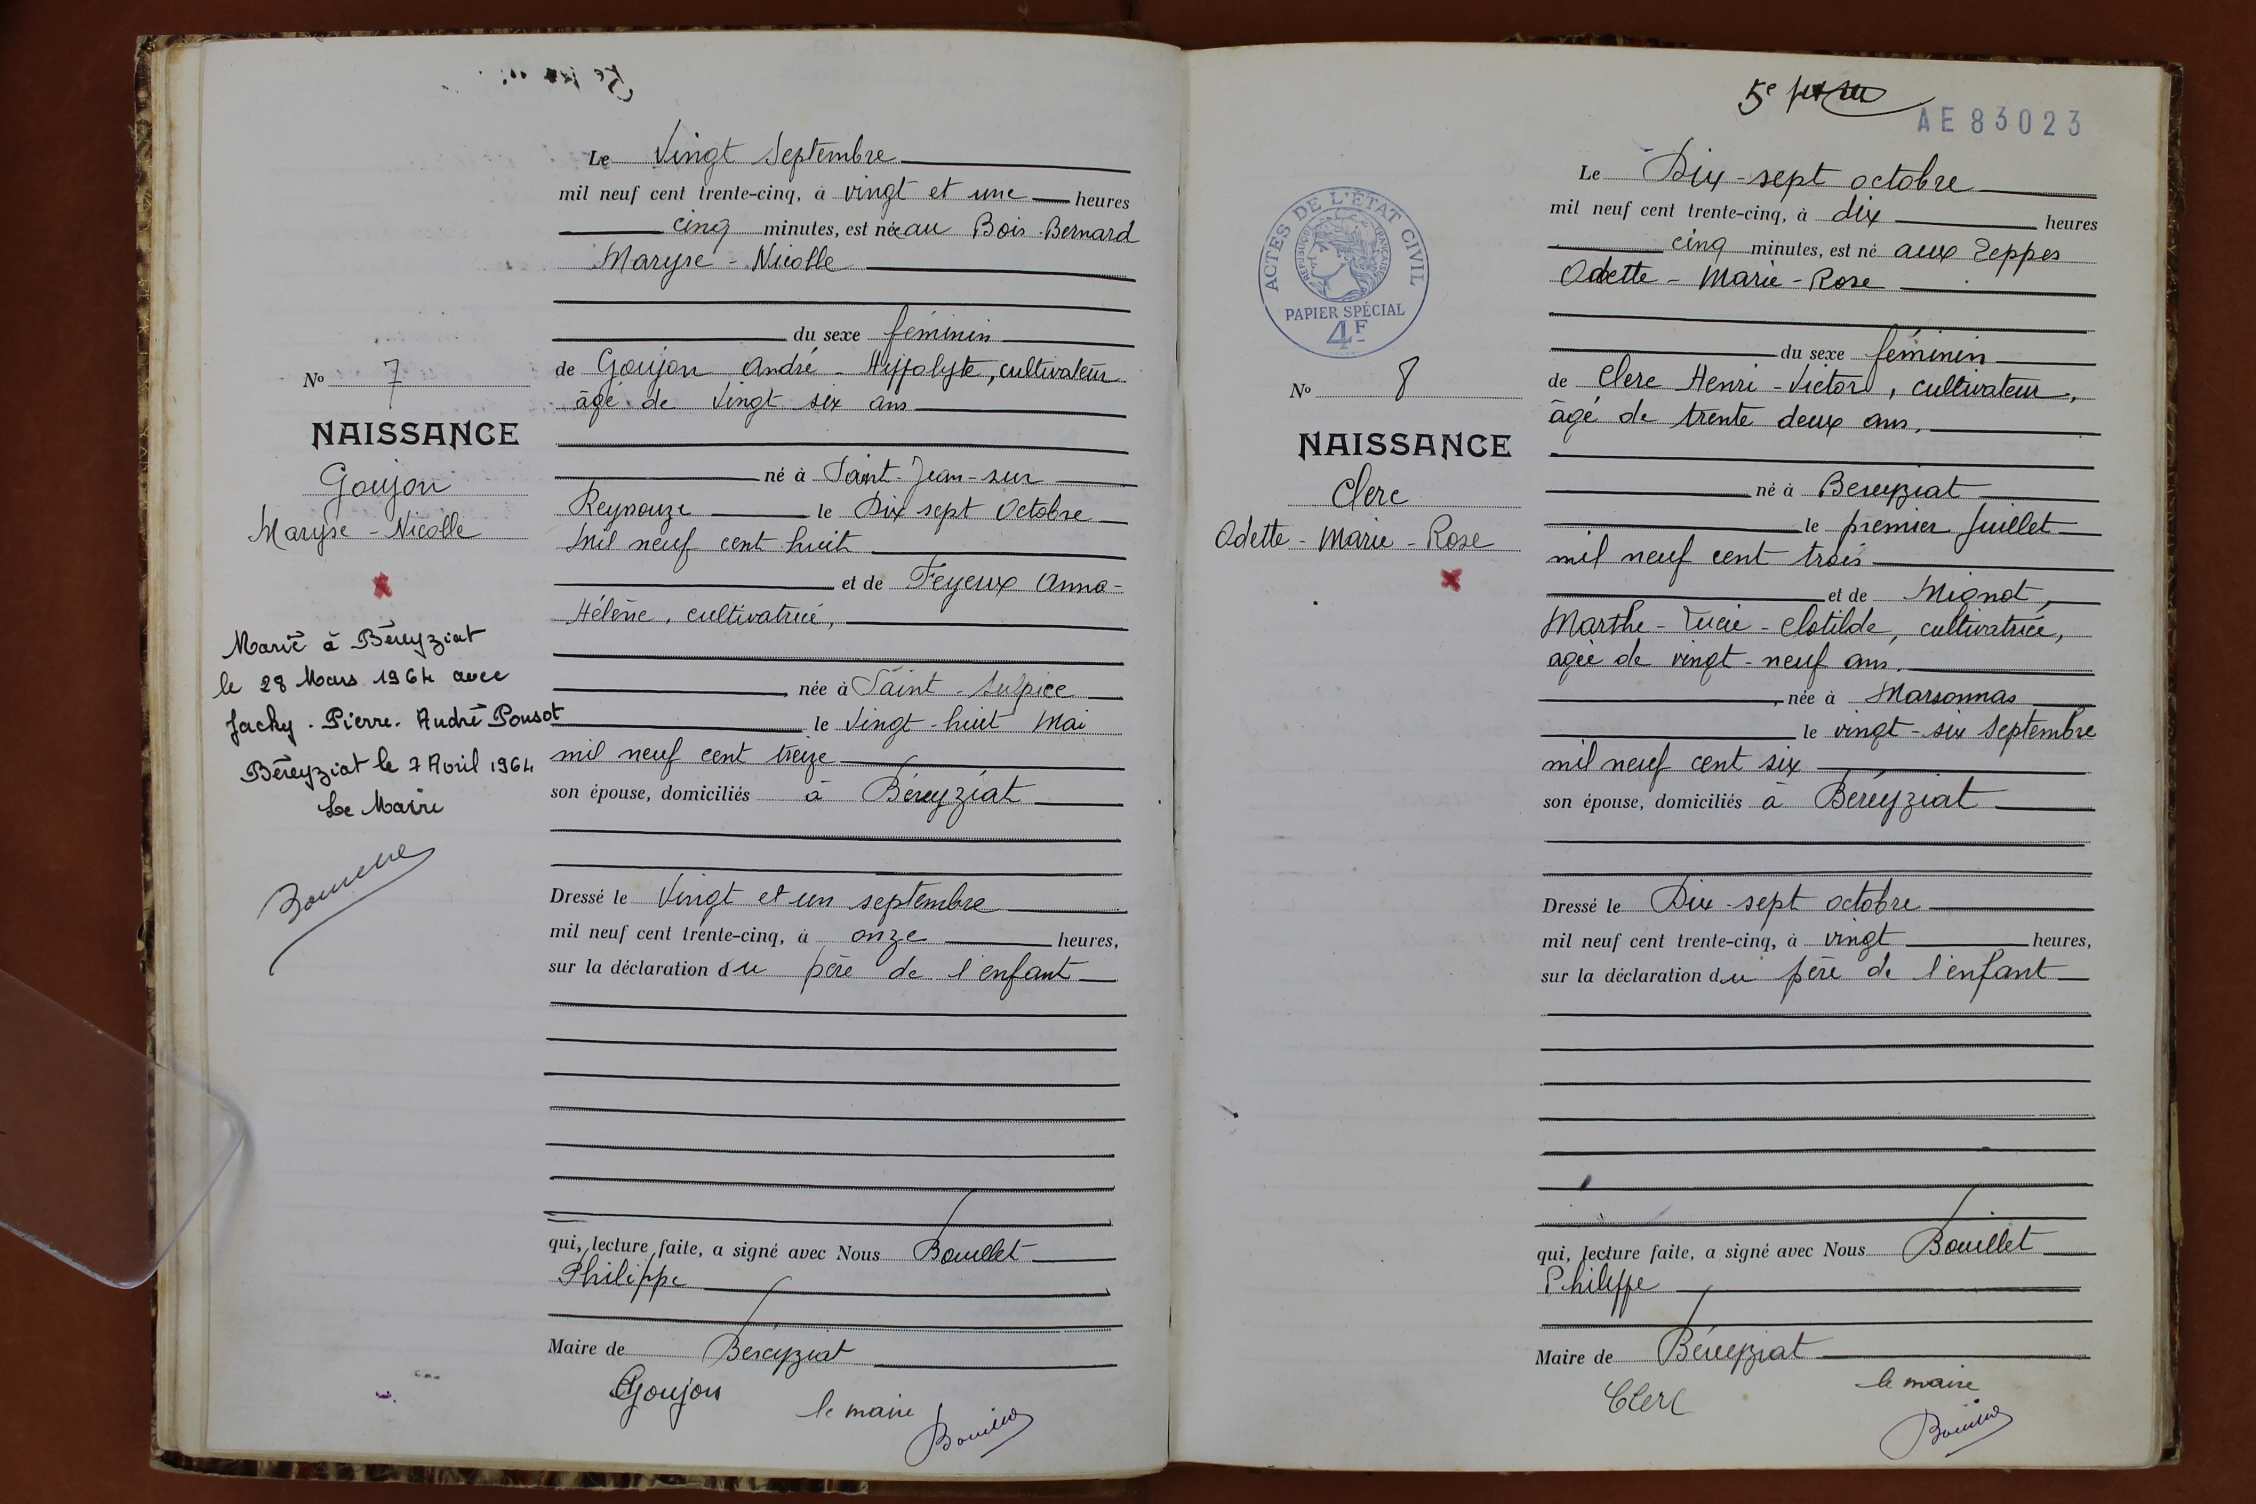 Le Vingt Septembre
mil neuf cent trente-cinq, à vingt et une heures
cinq minutes, est née au Bois-Bernard
Maryse - Nicolle
du sexe féminin
de Goujon André - Hippolyte, cultivateur
âgé de Vingt six ans
né à Saint-Jean-sur
Reyssouze le Dix sept Octobre
Mil neuf cent huit
et de Feyeux Anna-
Hélène, cultivatrice,
née à Saint-Sulpice
le Vingt-huit Mai
mil neuf cent treize
son épouse, domiciliés à Béreyziat
Dressé le Vingt et un septembre
mil neuf cent trente-cinq, à onze heures,
sur la déclaration du père de l'enfant
qui, lecture faite, a signé avec Nous Bouillet
Philippe
Maire de Béreyziat
Goujon
le maire
No 7
NAISSANCE
Goujon
Maryse - Nicolle
Marié à Béreyziat
le 28 Mars 1964 avec
Jacky. Pierre. André Ponsot
Béreyziat le 7 Avril 1964
Le Maire
5e
AE83023
ACTES DE L'ÉTAT CIVIL
RÉPUBLIQUE FRANÇAISE
PAPIER SPÉCIAL
4F
No 8
NAISSANCE
Clerc
Odette - Marie - Rose
Le Dix-sept octobre
mil neuf cent trente-cinq, à dix heures
cinq minutes, est né aux Teppes
Odette - Marie - Rose
du sexe féminin
de Clerc Henri - Victor, cultivateur,
âgé de trente deux ans,
né à Bereyziat
le premier Juillet
mil neuf cent trois
et de Mignot,
Marthe - Lucie - Clotilde, cultivatrice,
agée de vingt-neuf ans,
née à Marsonnas
le vingt-six Septembre
mil neuf cent six
son épouse, domiciliés à Béréyziat
Dressé le Dix-sept octobre
mil neuf cent trente-cinq, à vingt heures,
sur la déclaration du père de l'enfant
qui, lecture faite, a signé avec Nous Bouillet
Philippe
Maire de Béreyziat
Clerc
le maire